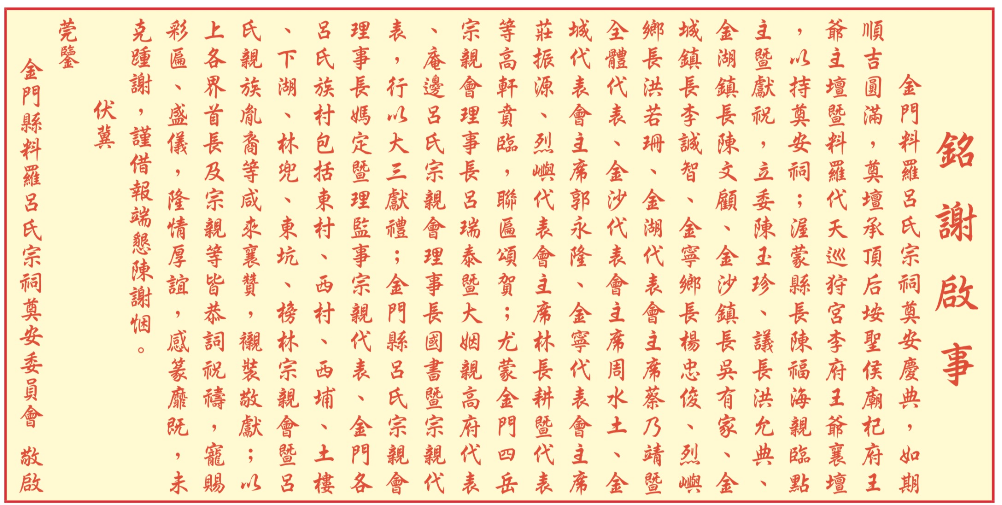 銘謝啟事
金門料羅呂氏宗祠奠安慶典，如期
順吉圓滿，奠壇承頂后垵聖侯廟杞府王
爺主壇暨料羅代天巡狩宮李府王爺襄壇
，以持奠安祠；渥蒙縣長陳福海親臨點
主暨獻祝，立委陳玉珍、議長洪允典、
金湖鎮長陳文顧、金沙鎮長吳有家、金
城鎮長李誠智、金寧鄉長楊忠俊、烈嶼
鄉長洪若珊、金湖代表會主席蔡乃靖暨
全體代表、金沙代表會主席周水土、金
城代表會主席郭永隆、金寧代表會主席
莊振源、烈嶼代表會主席林長耕暨代表
等高軒賁臨，聯匾頌賀；尤蒙金門四岳
宗親會理事長呂瑞泰暨大姻親高府代表
、庵邊呂氏宗親會理事長國書暨宗親代
表，行以大三獻禮；金門縣呂氏宗親會
理事長媽定暨理監事宗親代表、金門各
呂氏族村包括東村、西村、西埔、土樓
、下湖、林兜、東坑、榜林宗親會暨呂
氏親族胤裔等咸來襄贊，襯裝敬獻；以
上各界首長及宗親等皆恭詞祝禱，寵賜
彩匾、盛儀，隆情厚誼，感篆靡既，未
克踵謝，謹借報端懇陳謝悃。
伏冀
莞鑒
金門縣料羅呂氏宗祠奠安委員會 敬啟